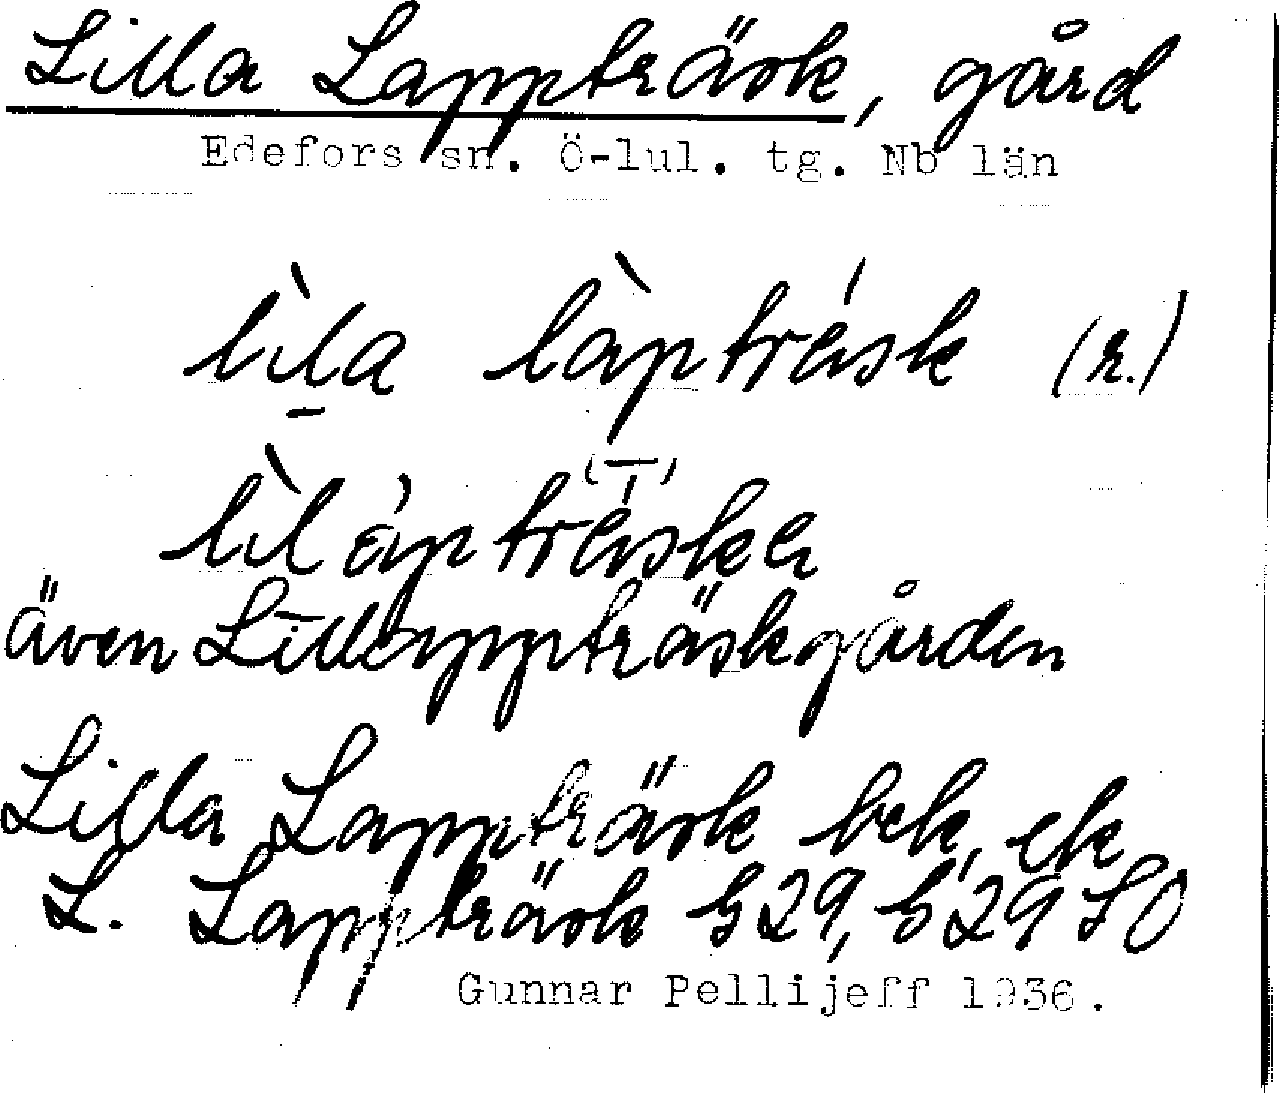 Lilla Lappträsk, gård
Edefors sn. Ö-lul. tg. Nb län
lìla làptrésk (r.)
lìláptrésken
även Lillappträskgården
Lilla Lappträsk bek, ek
L. Lappträsk G29, G29 SO
Gunnar Pellijeff 1936.